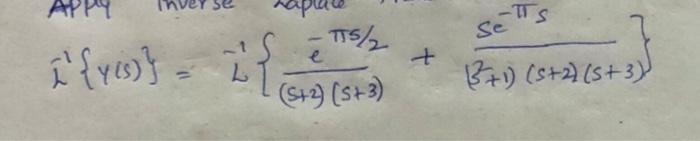 Apply Inverse Laplace
L⁻¹{Y(s)} = L⁻¹{ e^(-πs/2) / (s+2)(s+3) + se^(-πs) / (s²+1)(s+2)(s+3) }